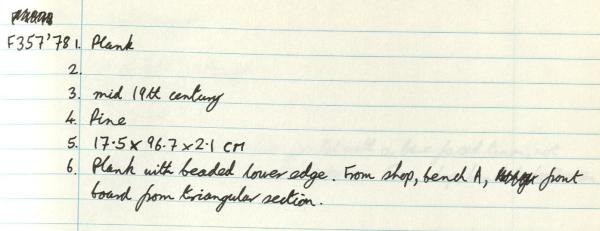 F357'78 1. Plank
2.
3. mid 19th century
4. Pine
5. 17.5 x 96.7 x 2.1 cm
6. Plank with beaded lower edge. From shop, bench A, front
board from triangular section.